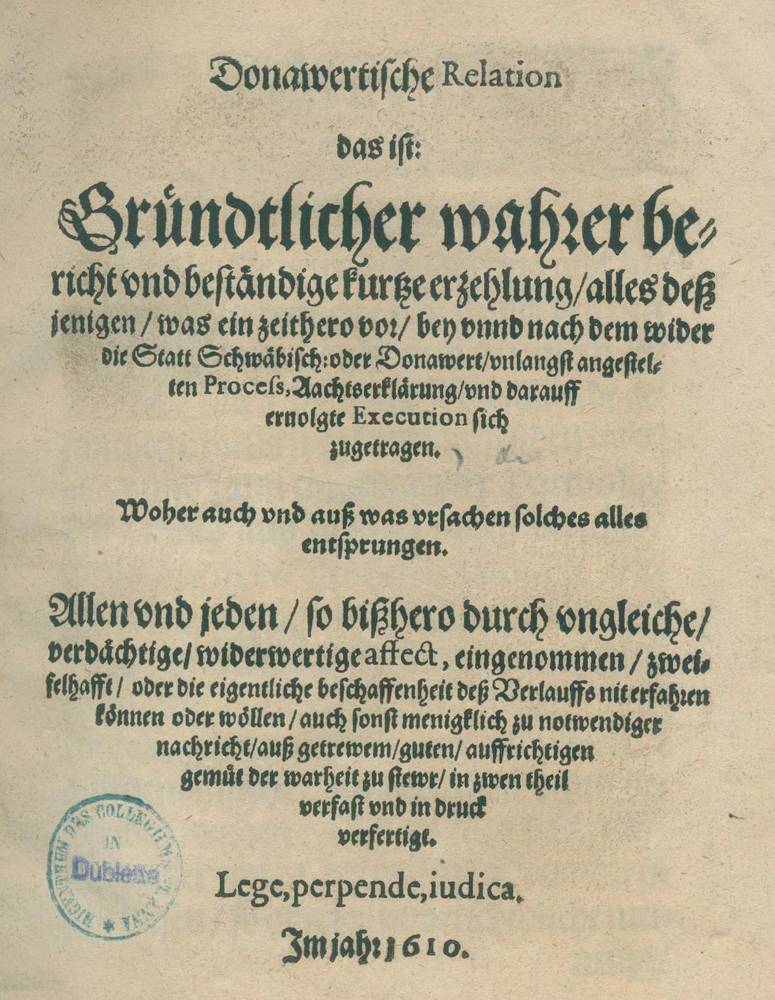 Donawertische Relation
das ist:
Gründtlicher wahrer be-
richt vnd beständige kurtze erzehlung/alles deß
jenigen / was ein zeithero vor/ bey vnnd nach dem wider
die Statt Schwäbisch: oder Donawert/vnlangst angestel-
ten Process, Aachtserklärung/vnd darauff
eruolgte Execution sich
zugetragen.
Woher auch vnd auß was vrsachen solches alles
entsprungen.
Allen vnd jeden / so bißhero durch vngleiche/
verdächtige/ widerwertige affect, eingenommen / zwei-
felhafft/ oder die eigentliche beschaffenheit deß Verlauffs nit erfahren
können oder wöllen / auch sonst menigklich zu notwendiger
nachricht/auß getrewem/guten/ auffrichtigen
gemüt der warheit zu stewr/ in zwen theil
verfast vnd in druck
verfertigt.
Lege, perpende, iudica.
Im jahr 1610.
EIGENTHUM DES COLLEGIUMS ST. ANNA
IN
Dublette